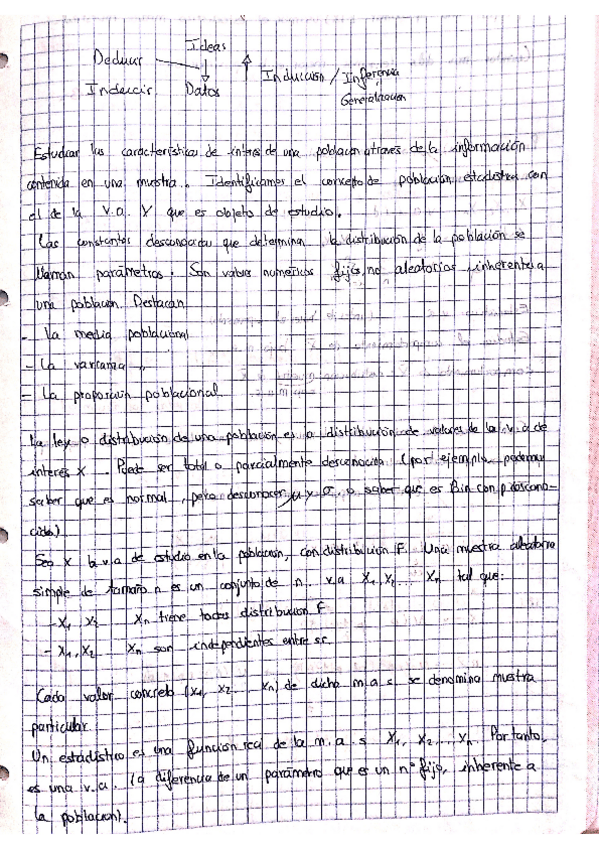 Ideas
Deducir
Inducción / Inferencia
Inducir Datos
Generalización
Estudiar las características de interés de una población através de la información
contenida en una muestra. Identificamos el concepto de población estadística con
el de la v.a. Y que es objeto de estudio.
Las constantes desconocidas que determinan la distribución de la población se
llaman parámetros. Son valores numéricos fijos, no aleatorios, inherentes a
una población. Destacan
- La media poblacional
- La varianza "
- La proporción poblacional
La ley o distribución de una población es a distribución de valores de la v.a de
interés X. Puede ser total o parcialmente desconocida (por ejemplo, podemos
saber que es normal, pero desconocer μ y σ, o saber que es Bin con p descono-
cido)
Sea X la v.a de estudio en la población, con distribución F. Una muestra aleatoria
simple de tamaño n es un conjunto de n v.a X₁, X₂ ... Xₙ tal que:
- X₁ X₂ ... Xₙ tiene todas distribución F
- X₁, X₂ ... Xₙ son independientes entre sí
Cada valor concreto (x₁, x₂ ... xₙ) de dicho m.a.s. se denomina muestra
particular
Un estadístico es una función real de la m.a.s X₁, X₂, ..., Xₙ. Por tanto,
es una v.a. (a diferencia de un parámetro que es un nº fijo, inherente a
la población).